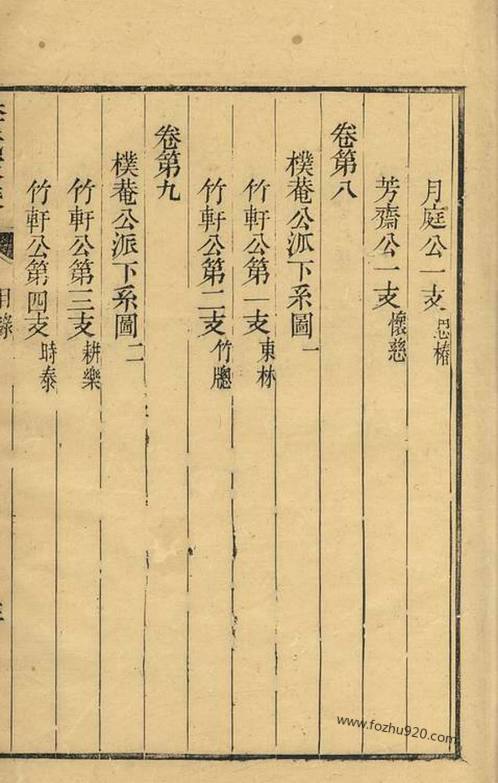 月庭公一支 思椿
芳齋公一支 懷慈
卷第八
樸菴公派下系圖 一
竹軒公第一支 東林
竹軒公第二支 竹牕
卷第九
樸菴公派下系圖 二
竹軒公第三支 耕樂
竹軒公第四支 時泰
目錄
www.fozhu920.com